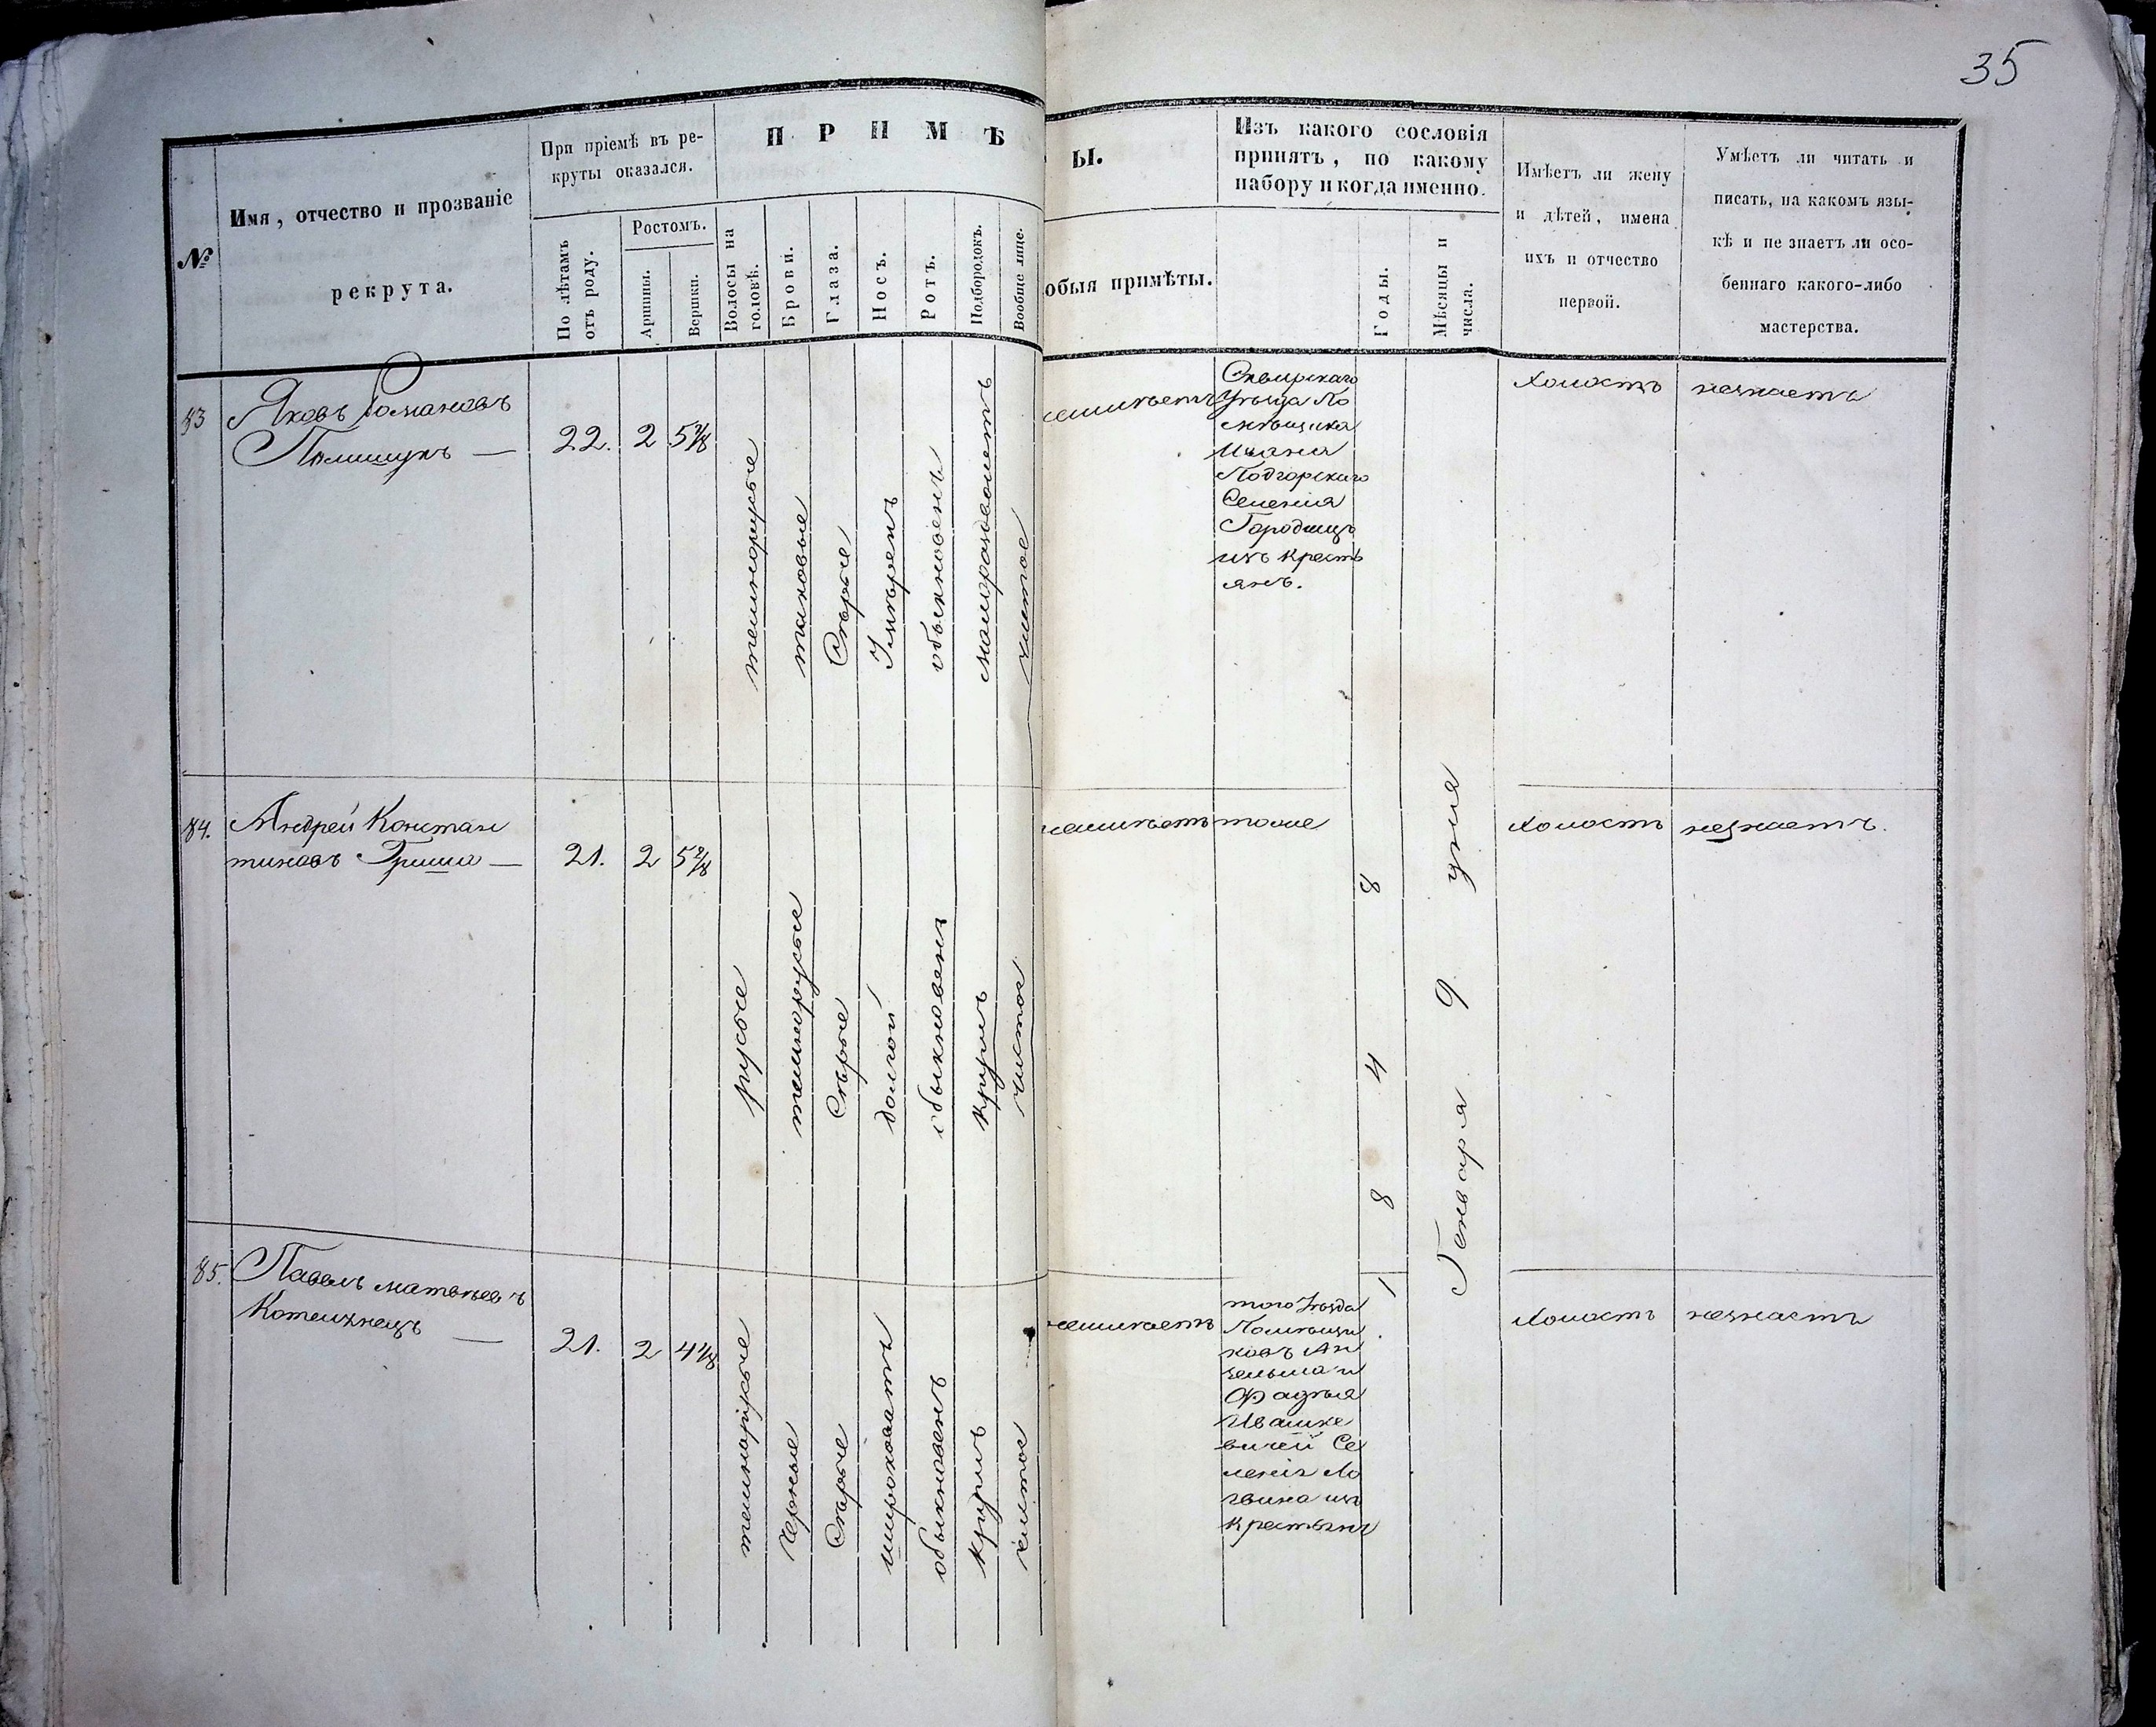 35
№
Имя, отчество и прозваніе
рекрута.
При пріемѣ въ ре-
круты оказался.
По лѣтамъ
отъ роду.
Ростомъ.
Аршины.
Вершки.
ПРИМѢ
Волосы на
головѣ.
Брови.
Глаза.
Носъ.
Ротъ.
Подбородокъ.
Вообще лице.
ы.
обыя примѣты.
Изъ какого сословія
принятъ, по какому
набору и когда именно.
Годы.
Мѣсяцы и
числа.
Имѣетъ ли жену
и дѣтей, имена
ихъ и отчество
первой.
Умѣетъ ли читать и
писать, на какомъ язы-
кѣ и не знаетъ ли осо-
беннаго какого-либо
мастерства.
83
Яковъ Романовъ
Полищукъ —
22.
2
темнорусые
таковые
Сѣрые
Умѣренъ
обыкновенъ
малораздвоенъ
чистое
неимѣетъ
Сквирскаго
Уѣзда По
мѣщика
Ивана
Подгорскаго
Селенія
Городищъ
изъ кресть
янъ.
холостъ
незнаетъ
84.
Андрей Констан
тиновъ Гриша —
21.
2
5 2/8
русые
темнорусые
Сѣрые
долгой
обыкновенъ
круглъ
чистое
неимѣетъ
тоже
1848
Генваря 9 дня
холостъ
незнаетъ.
85.
Павелъ Матвѣевъ
21.
2
4 1/8
темнорусые
Черные
Сѣрые
широковатъ
обыкновенъ
круглъ
чистое
неимѣетъ
того Уѣзда
Помѣщи
ковъ Ан
зельма и
Фадѣя
Ивашке
вичей Се
ленія Ло
гвина изъ
крестьянъ
холостъ
незнаетъ